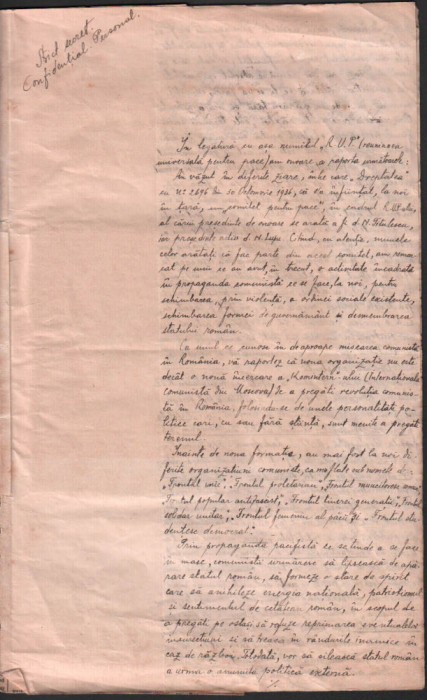 Strict secret
Confidențial. Personal.
În legătură cu așa numitul „R.U.P.” (reuniunea
universală pentru pace) am onoare a raporta următoarele:
Am văzut în diferite ziare, între care „Dreptatea”
cu Nr. 2696 din 10 Octomvrie 1936, că s'a înființat, la noi
în țară, un „comitet pentru pace”, în cadrul R.U.P.-ului,
al cărui președinte de onoare se arată a fi d. N. Titulescu,
iar președinte activ d. N. Lupu. Citind, cu atenție, numele
celor arătați că fac parte din acest comitet, am remar-
cat pe unii ce au avut, în trecut, o activitate încadrată
în propaganda comunistă ce se face, la noi, pentru
schimbarea, prin violență, a ordinei sociale existente,
schimbarea formei de guvernământ și desmembrarea
statului român.
Ca unul ce cunosc în deaproape mișcarea comunistă
în România, vă raportez că noua organizație nu este
decât o nouă încercare a „Komintern”-ului (Internaționala
comunistă din Moscova) de a pregăti revoluția comunis-
tă în România, folosindu-se de unele personalități po-
litice cari, cu sau fără știință, sunt menite a pregăti
terenul.
Înainte de noua formație, au mai fost la noi di-
ferite organizațiuni comuniste, camuflate sub numele de:
„Frontul unic”, „Frontul proletarian”, „Frontul muncitoresc
„Frontul popular antifascist”, „Frontul tinerei generații”, „Frontul
solidar unitar”, „Frontul feminin al păcii” și „Frontul stu-
dențesc democrat.”
Prin propaganda pacifistă ce se tinde a se face
în masse, comuniștii urmăresc să lipsească de apă-
rare statul român, să formeze o stare de spirit
care să anihileze energia națională, patriotismul
și sentimentul de cetățean român, în scopul de
a pregăti pe ostași să refuze reprimarea eventualelor
insurecțiuni și să treacă în rândurile inamice în
caz de război. Totodată, vor să silească statul român
a urma o anumită politică externă.